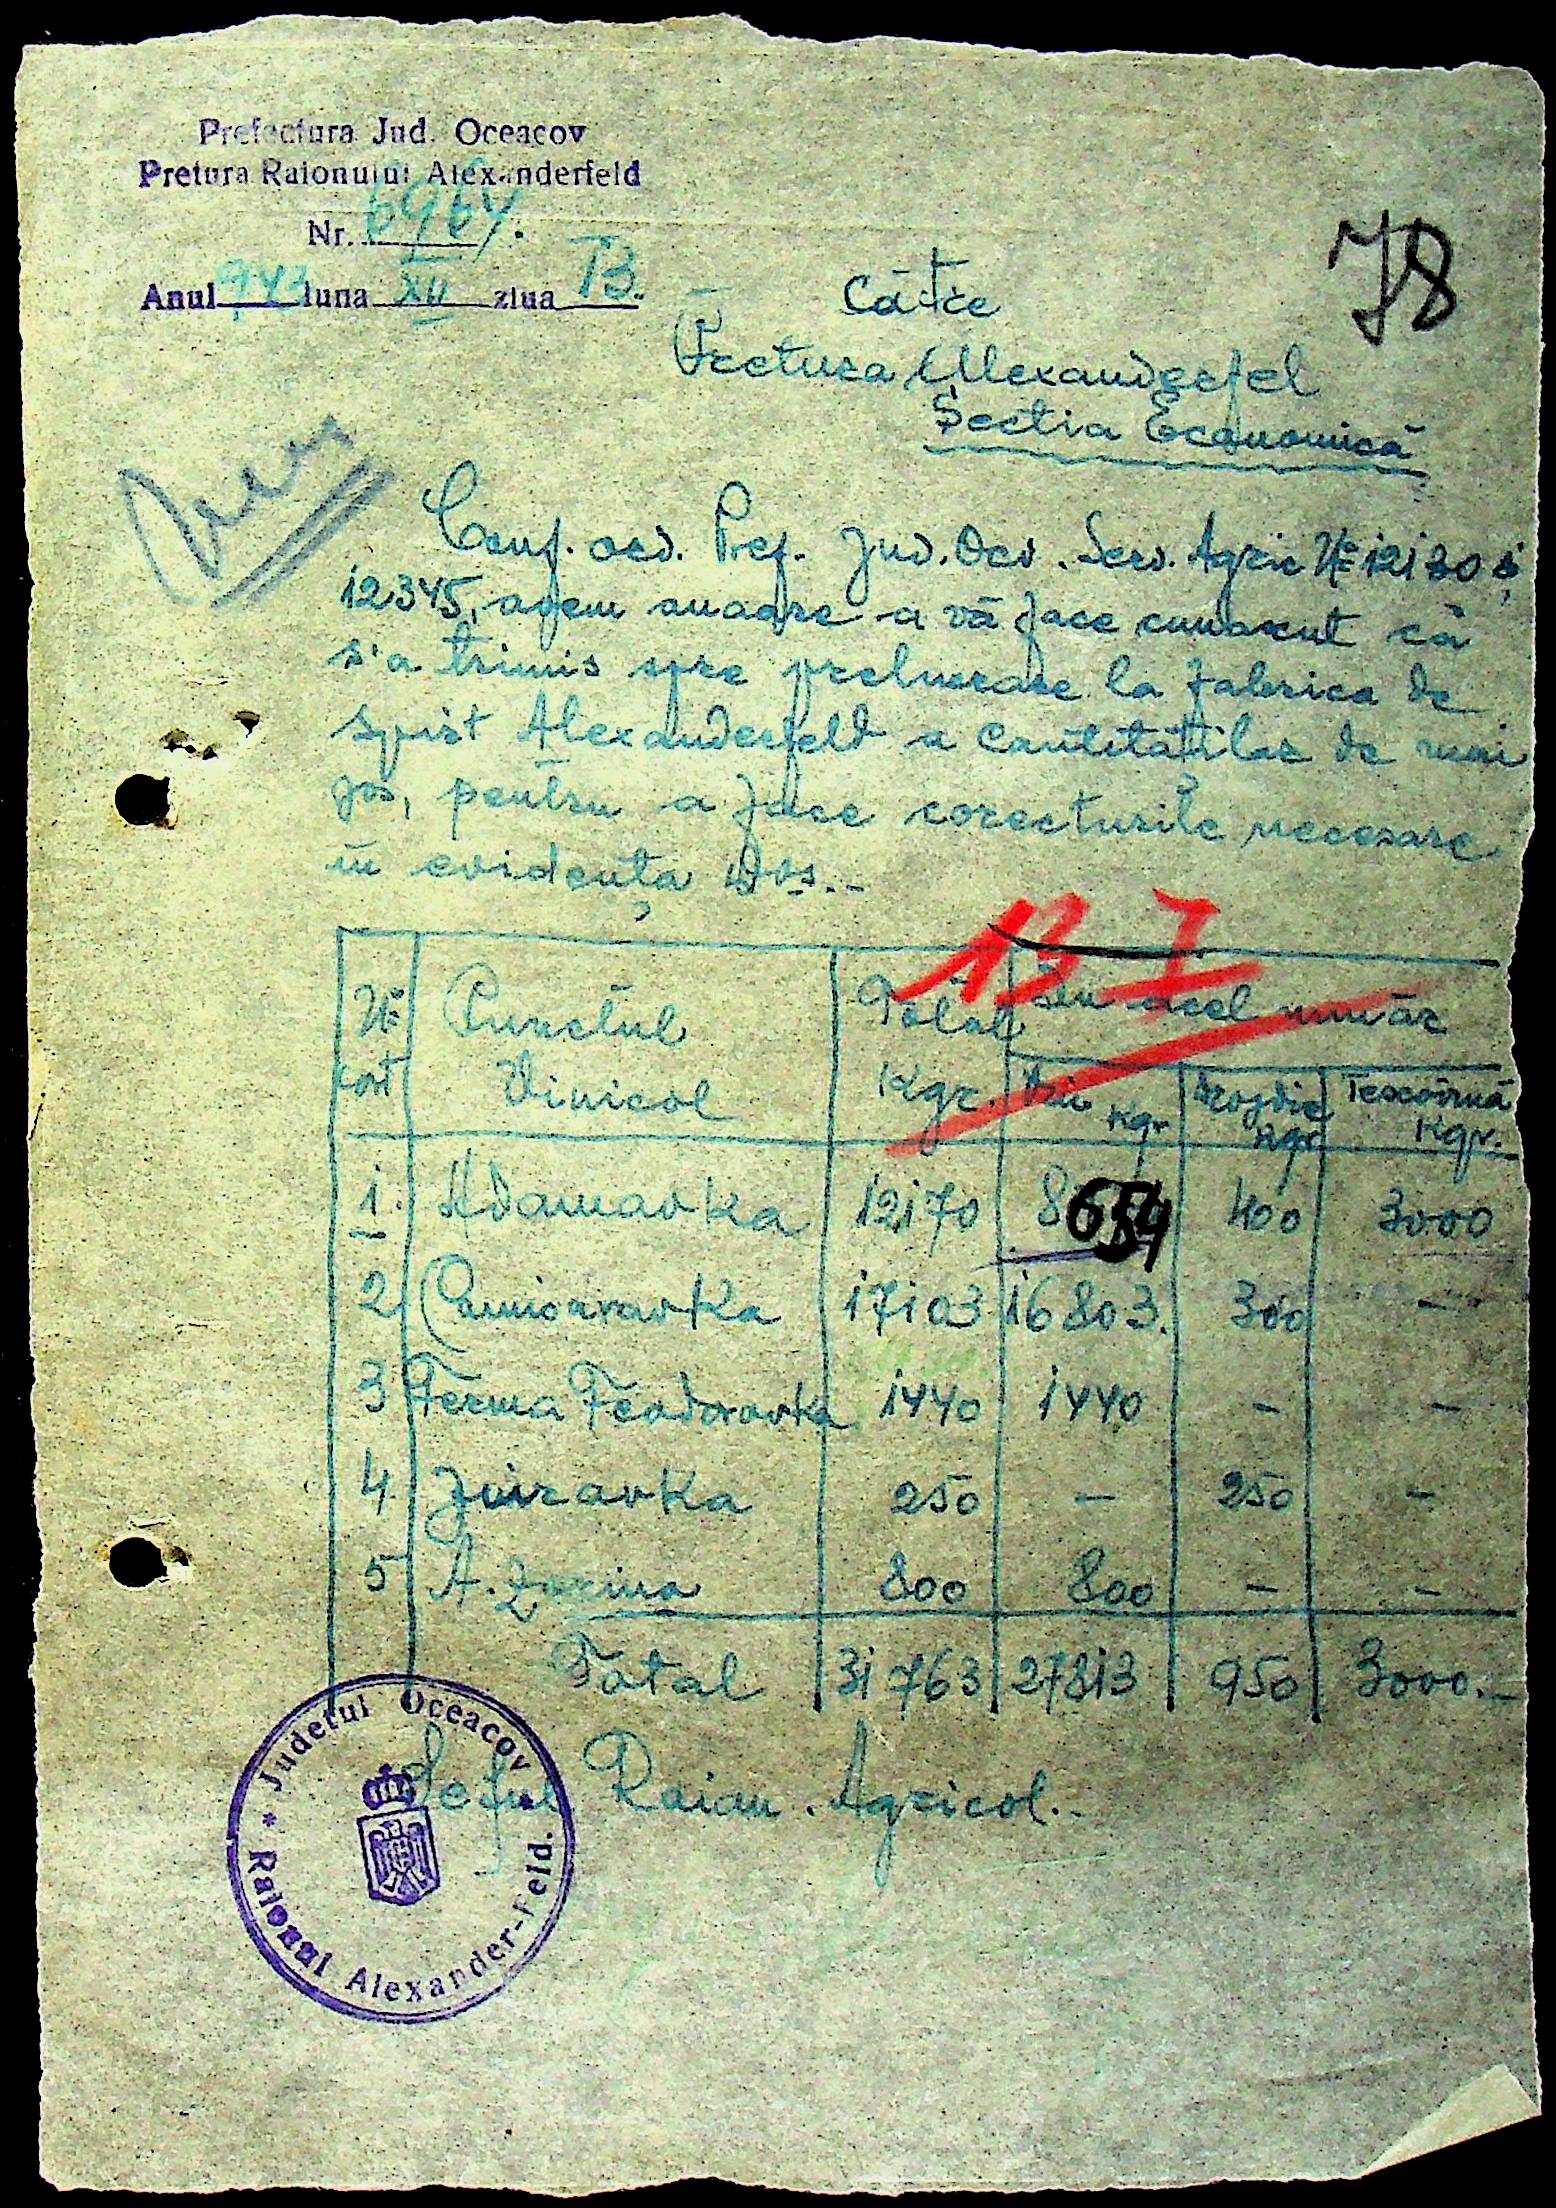 Prefectura Jud. Oceacov
Pretura Raionului Alexanderfeld
Nr. 6964.
Anul 943 luna XII ziua 13.
78
Cătrе
Pretura Alexanderfel
Secția Economică
Conf. ord. Pref. Jud. Ocv. Serv. Agric № 12130 și
12345, avem onoare a vă face cunoscut că
s'a trimis spre prelucrare la fabrica de
spirt Alexanderfeld a cantităților de mai
jos, pentru a face corecturile necesare
în evidența Dvs.-
13 I
№ crt Punctul Vinicol Total Kgr. Din acel număr
Vin Kgr. Drojdie Kgr Tescovină Kgr.
1. Adamavka 12170 8 400 3000
2 17103 16803. 300 -
3 Ferma Feodorovka 1440 1440 - -
4. 250 - 250 -
5 A. 800 800 - -
Total 31763 27813 950 3000.-
Șeful Raion. Agricol.-
Judetul Oceacov
* Raionul Alexander-Feld.